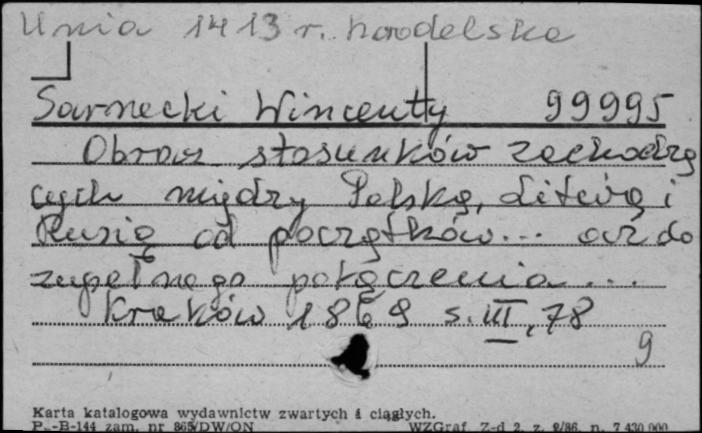 Unia 1413 r. horodelska
Sarnecki Wincenty 99995
Obraz stosunków zachodzą
cych między Polską, Litwą i
Rusią od początków... aż do
zupełnego połączenia...
Kraków 1869 s. III, 78
9
Karta katalogowa wydawnictw zwartych i ciągłych.
P.-B-144 zam. nr 865/DW/ON WZGraf. Z-d 2, z. 2/86, n. 7 430 000